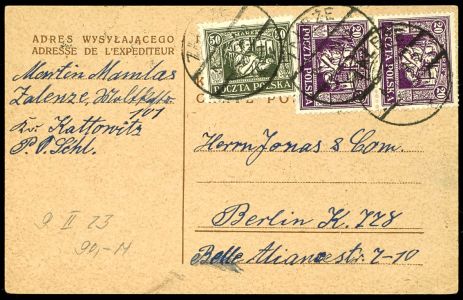 ADRES WYSYŁAJĄCEGO
ADRESSE DE L'EXPEDITEUR
Martin Mamlas
Zalenze,
107
Kr. Kattowitz
P. O. Schl.
9 II 23
90,- M
50
POCZTA POLSKA
20
20
POCZTA POLSKA
20
POCZTA POLSKA
Herrn Jonas & Com.
Berlin K. 728
Belle Aliance 7-10